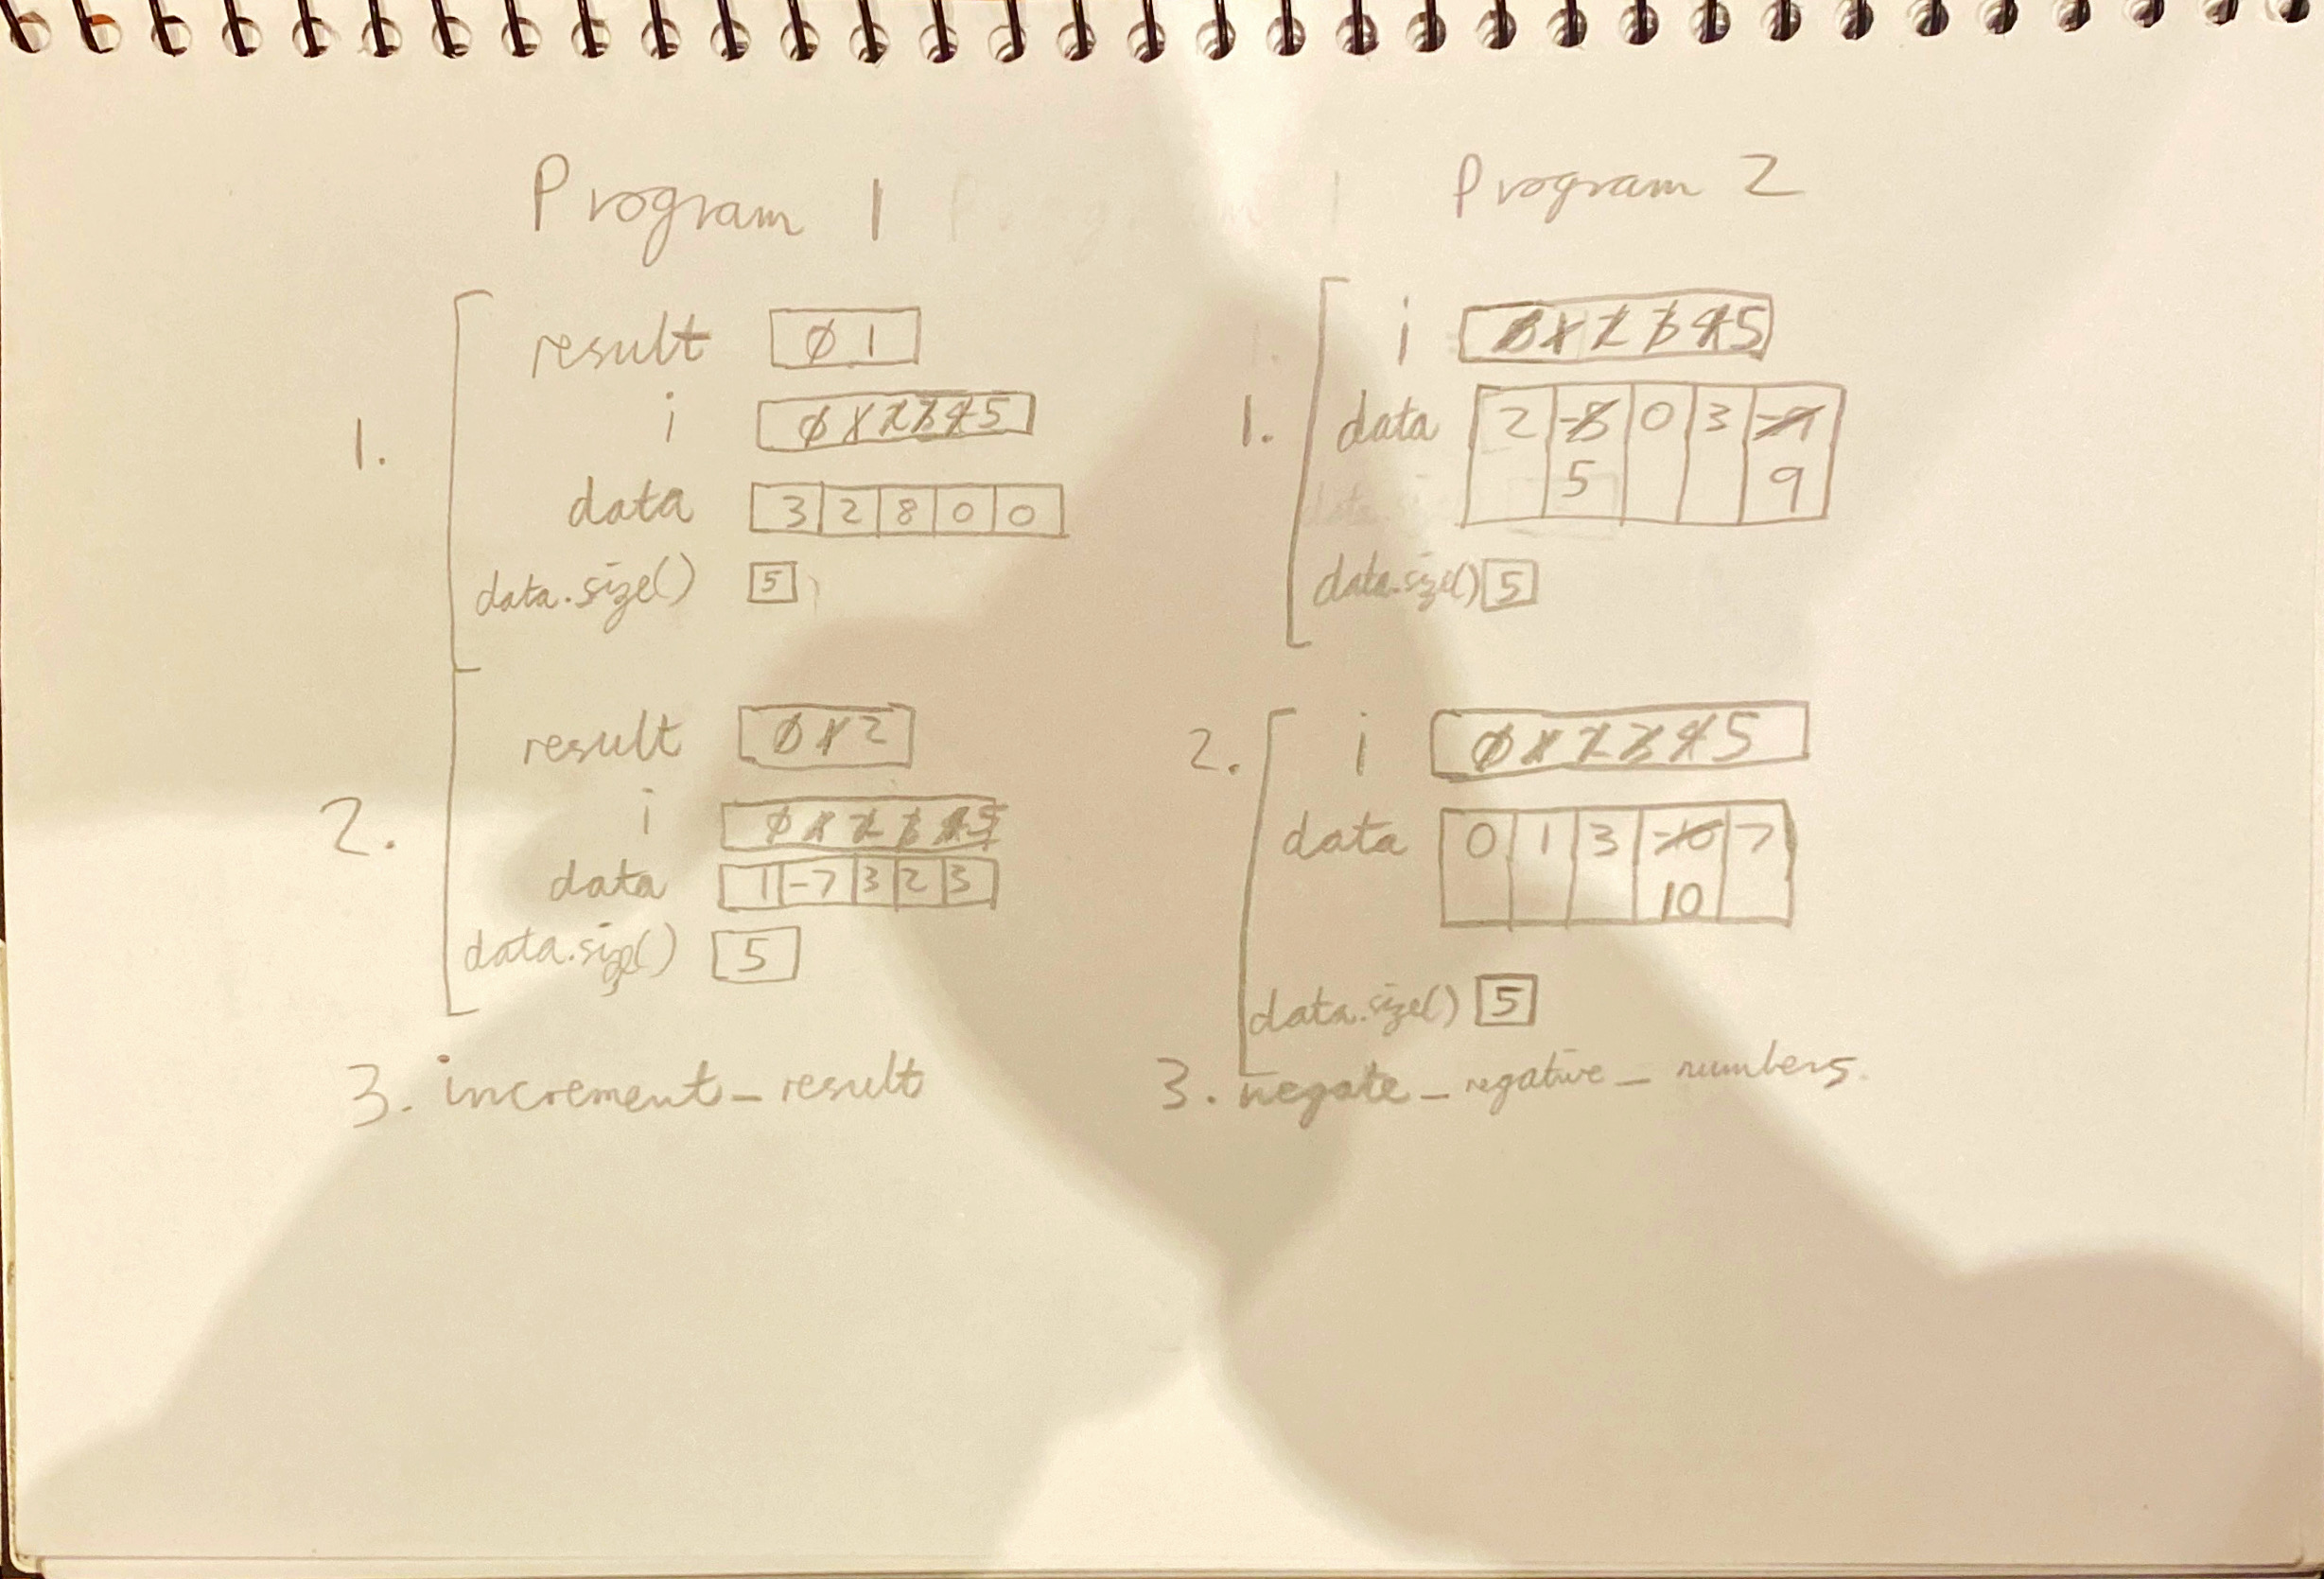 Program 1
1.
result 0 1
i 0 1 2 3 4 5
data 3 2 8 0 0
data.size() 5
2.
result 0 1 2
i 0 1 2 3 4 5
data 1 -7 3 2 3
data.size() 5
3. increment_result
Program 2
1.
i 0 1 2 3 4 5
data 2 0 3
5 9
data.size() 5
2.
i 0 1 2 3 4 5
data 0 1 3 -10 7
10
data.size() 5
3. negate_negative_numbers